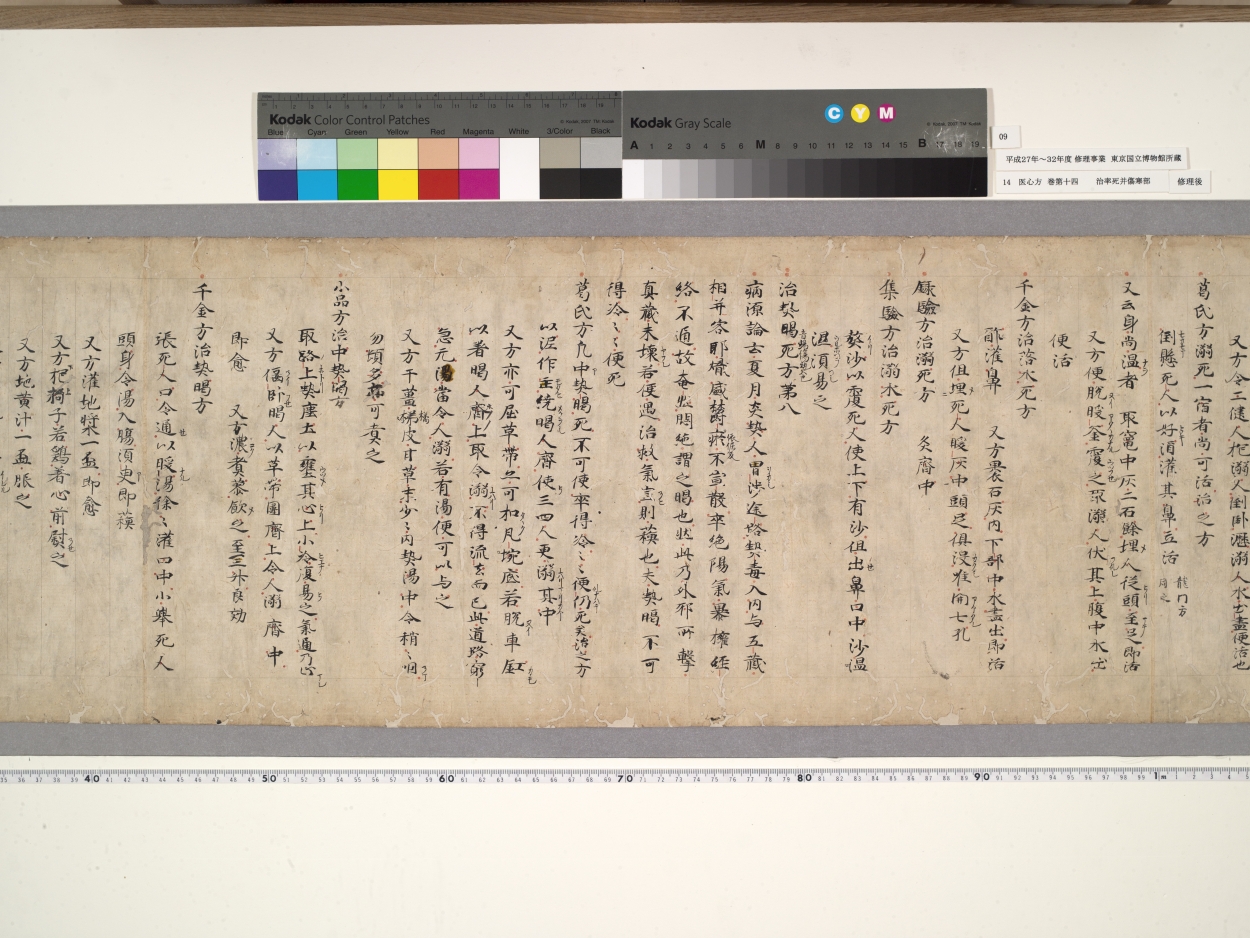 Kodak Color Control Patches
© Kodak, 2007 TM: Kodak
Blue Cyan Green Yellow Red Magenta White 3/Color Black
Kodak Gray Scale
C Y M
© Kodak, 2007 TM: Kodak
A 1 2 3 4 5 6 M 8 9 10 11 12 13 14 15 B 17 18 19
09
平成27年～32年度 修理事業 東京国立博物館所蔵
14 医心方 巻第十四 治卒死并傷寒部
修理後
又方令工健人 溺人倒卧 溺人水出盡便活也
葛氏方溺死一宿者尚可活治之方
倒懸死人以好酒灌其鼻立活
龍門方同之
又云身尚温者 取竃中灰二石餘埋人從頭至足即活
又方便脱 釜覆之取溺人伏其上腹中水出
便活
千金方治落水死方
酢灌鼻 又方裹石灰内下部中水盡出即活
又方但埋死人暖灰中頭足俱没唯開七孔
録驗方治溺死方 灸齊中
集驗方治溺水死方
熬沙以覆死人使上下有沙但出鼻口中沙温
湿須易之
治熱暍死方第八
病源論云夏月炎熱人冒渉途路熱毒入内与五藏
相并客耶熾盛 不宣散卒絶陽氣暴 經
絡不通故奄然悶絶謂之暍也然此乃外邪所擊
真藏未壊若便遇治救氣 則蘓也夫熱暍不可
得冷〻便死
葛氏方凡中熱暍死不可使卒得冷〻便仍死矣治之方
以泥作 繞暍人齊使三四人更溺其中
又方亦可屈草帶 可扣凡埦底若脱車釭
以著暍人齊上取令溺不得流去而已此道路窮
急无湯當令人溺若有湯便可以与之
又方干薑橘皮甘草末少〻内熱湯中令稍〻咽
勿頓多 可煮之
小品方治中熱暍方
取路上熱塵土以壅其心上小冷復易之氣通乃止
又方偃卧暍人以草帶圍齊上令人溺齊中
即愈 又方濃煮蓼飲之至三升良効
千金方治熱暍方
張死人口令通以暖湯徐〻灌口中小舉死人
頭身令湯入腸須臾即蘓
又方灌地漿一盃即愈
又方 子若鷄著心前熨之
又方地黄汁一盃服之
40 50 60 70 80 90 1m